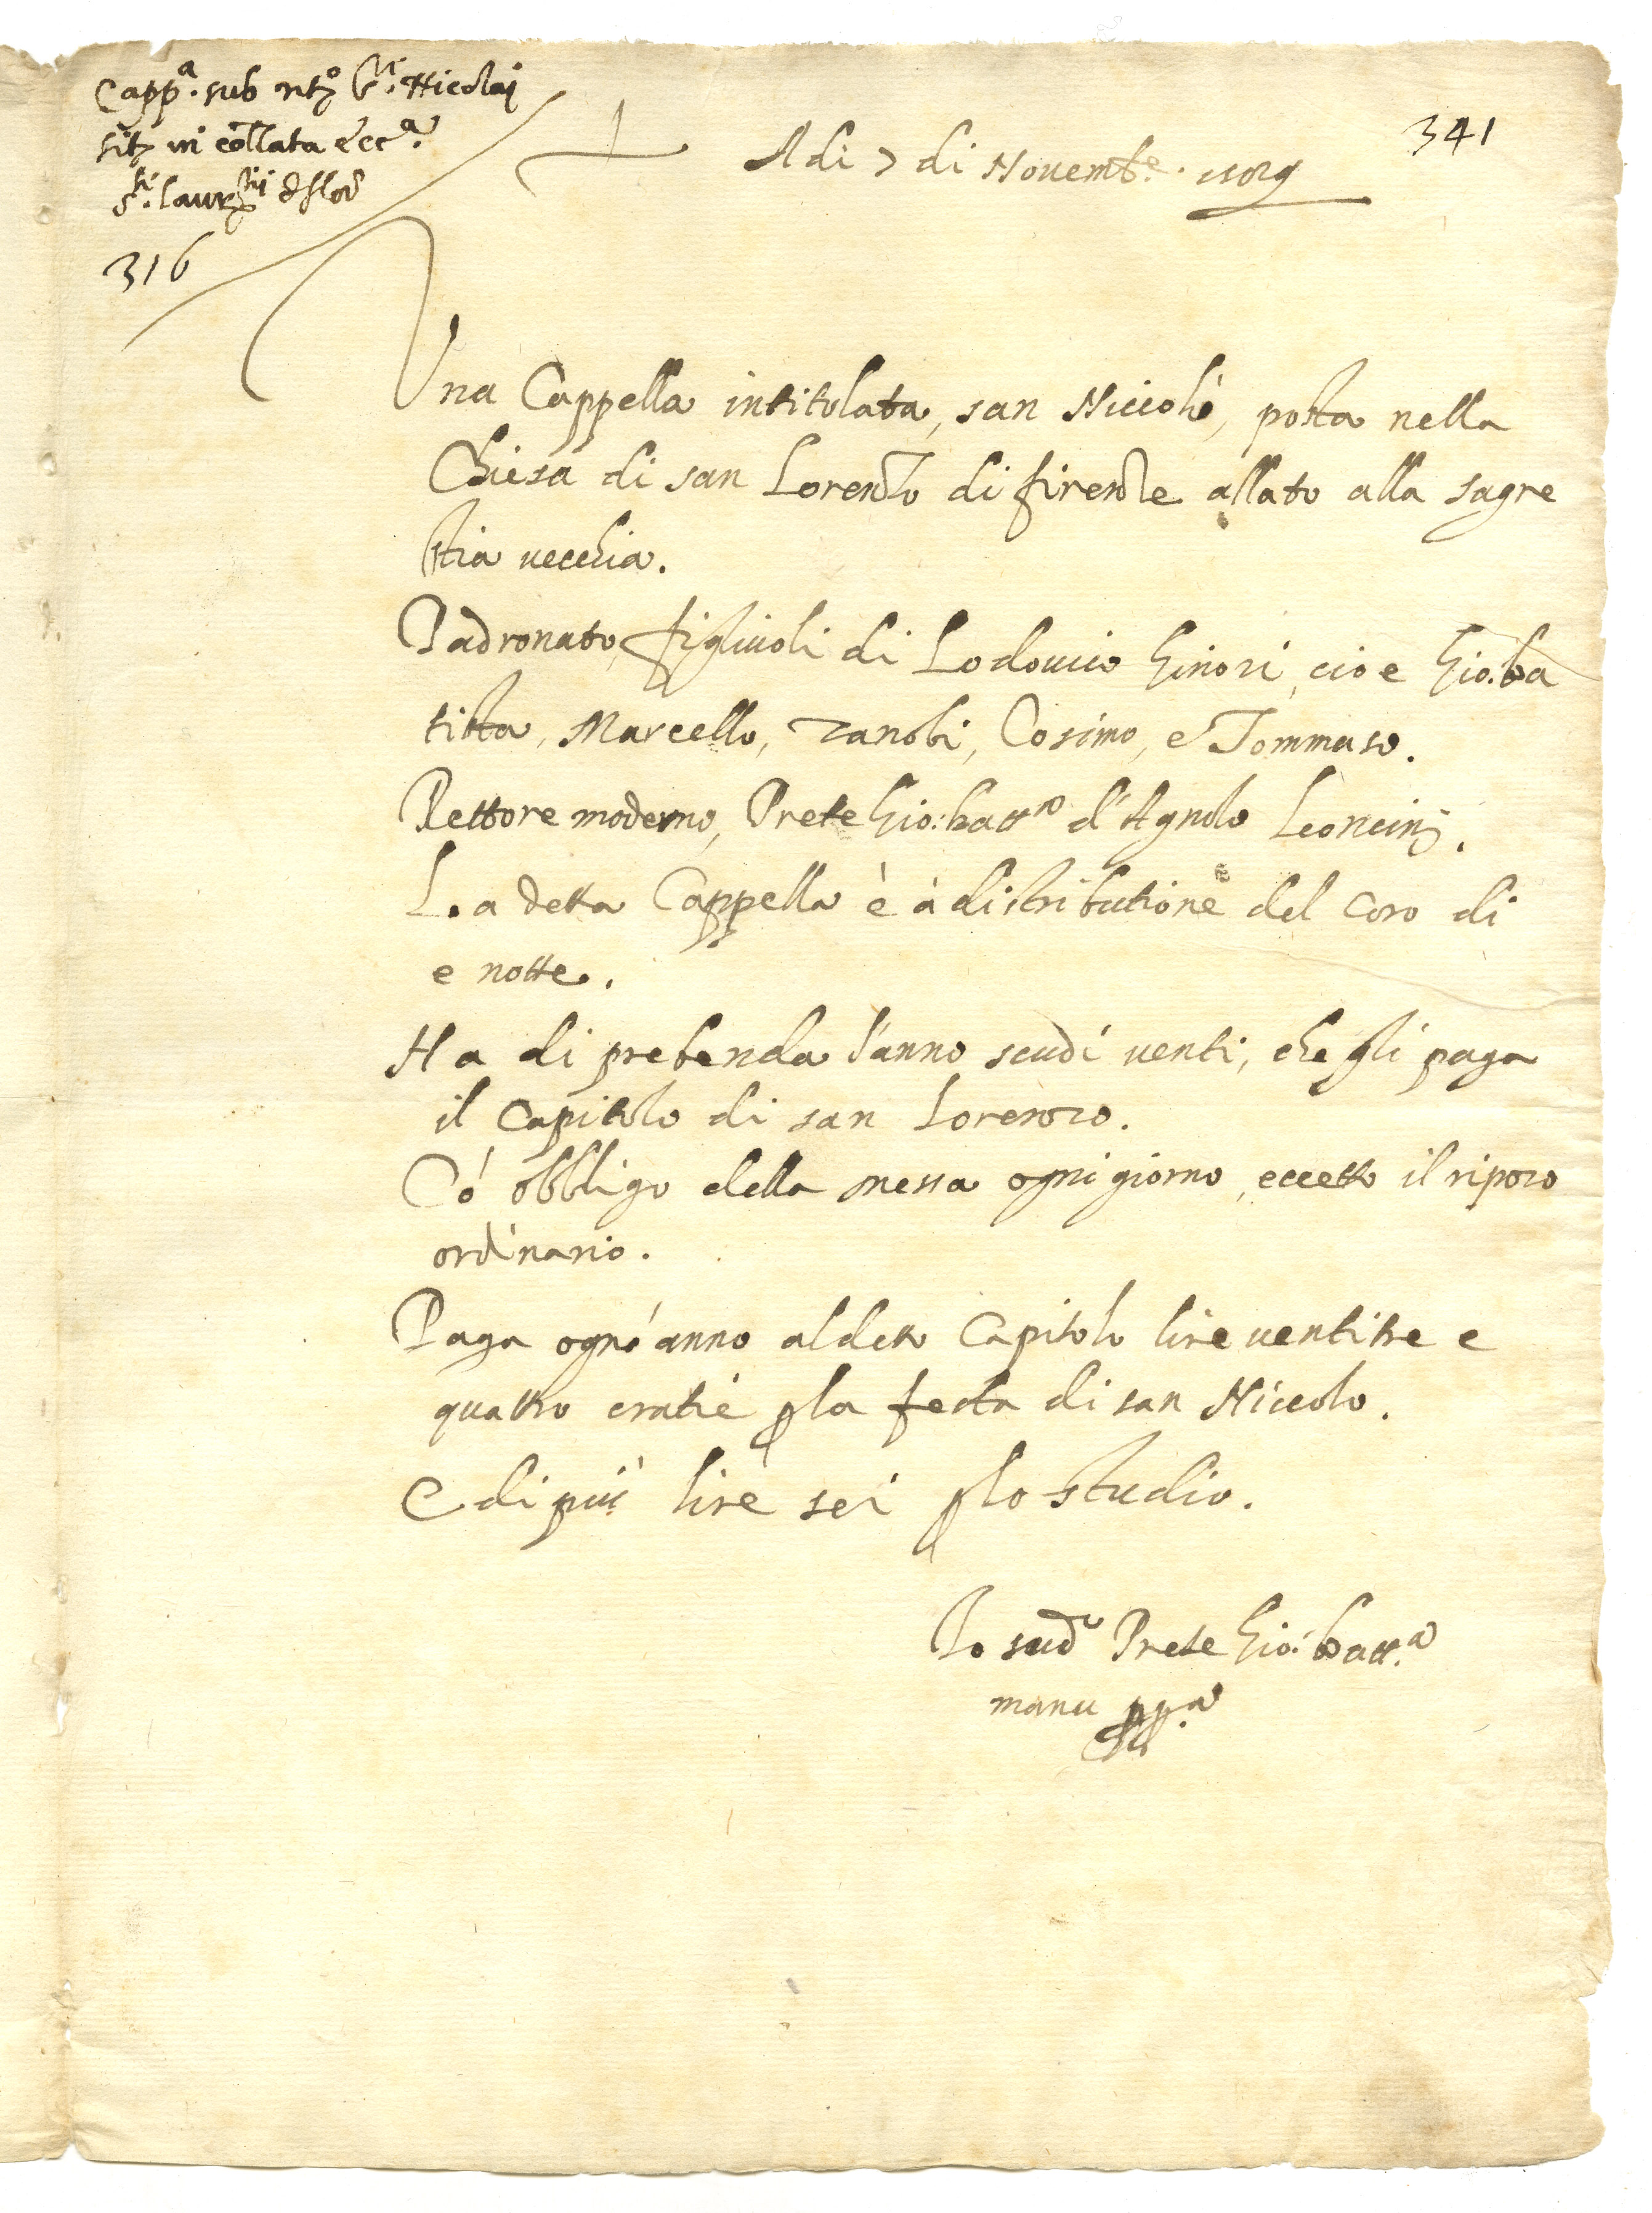 Capp.ª sub nto S.ti Nicolai
sit in collata ecc.ª
S.ti Laurtij d Flor
316
341
Adi 7 di Novemb.e
Una Cappella intitolata, san Niccolò, posta nella
Chiesa di san Lorenzo di firenze allato alla sagre
stia vecchia.
Padronato, figliuoli di Lodovico Ginori, cioe Gio. ba
tista, Marcello, Zanobi, Cosimo, e Tommaso.
Rettore moderno, Prete Gio: batt.a d'Agnolo Leoncinj.
La detta Cappella è à distributione del Coro di
e notte.
Ha di prebenda l'anno scudi venti, che gli paga
il Capitolo di san Lorenzo.
Cò obbligo della messa ogni giorno, eccetto il riposo
ordinario.
Paga ogni anno al detto Capitolo lire ventitre e
quattro cratie p la festa di san Niccolo.
E di più lire sei p lo studio.
Io sud.o Prete Gio: batt.a
manu pp.a